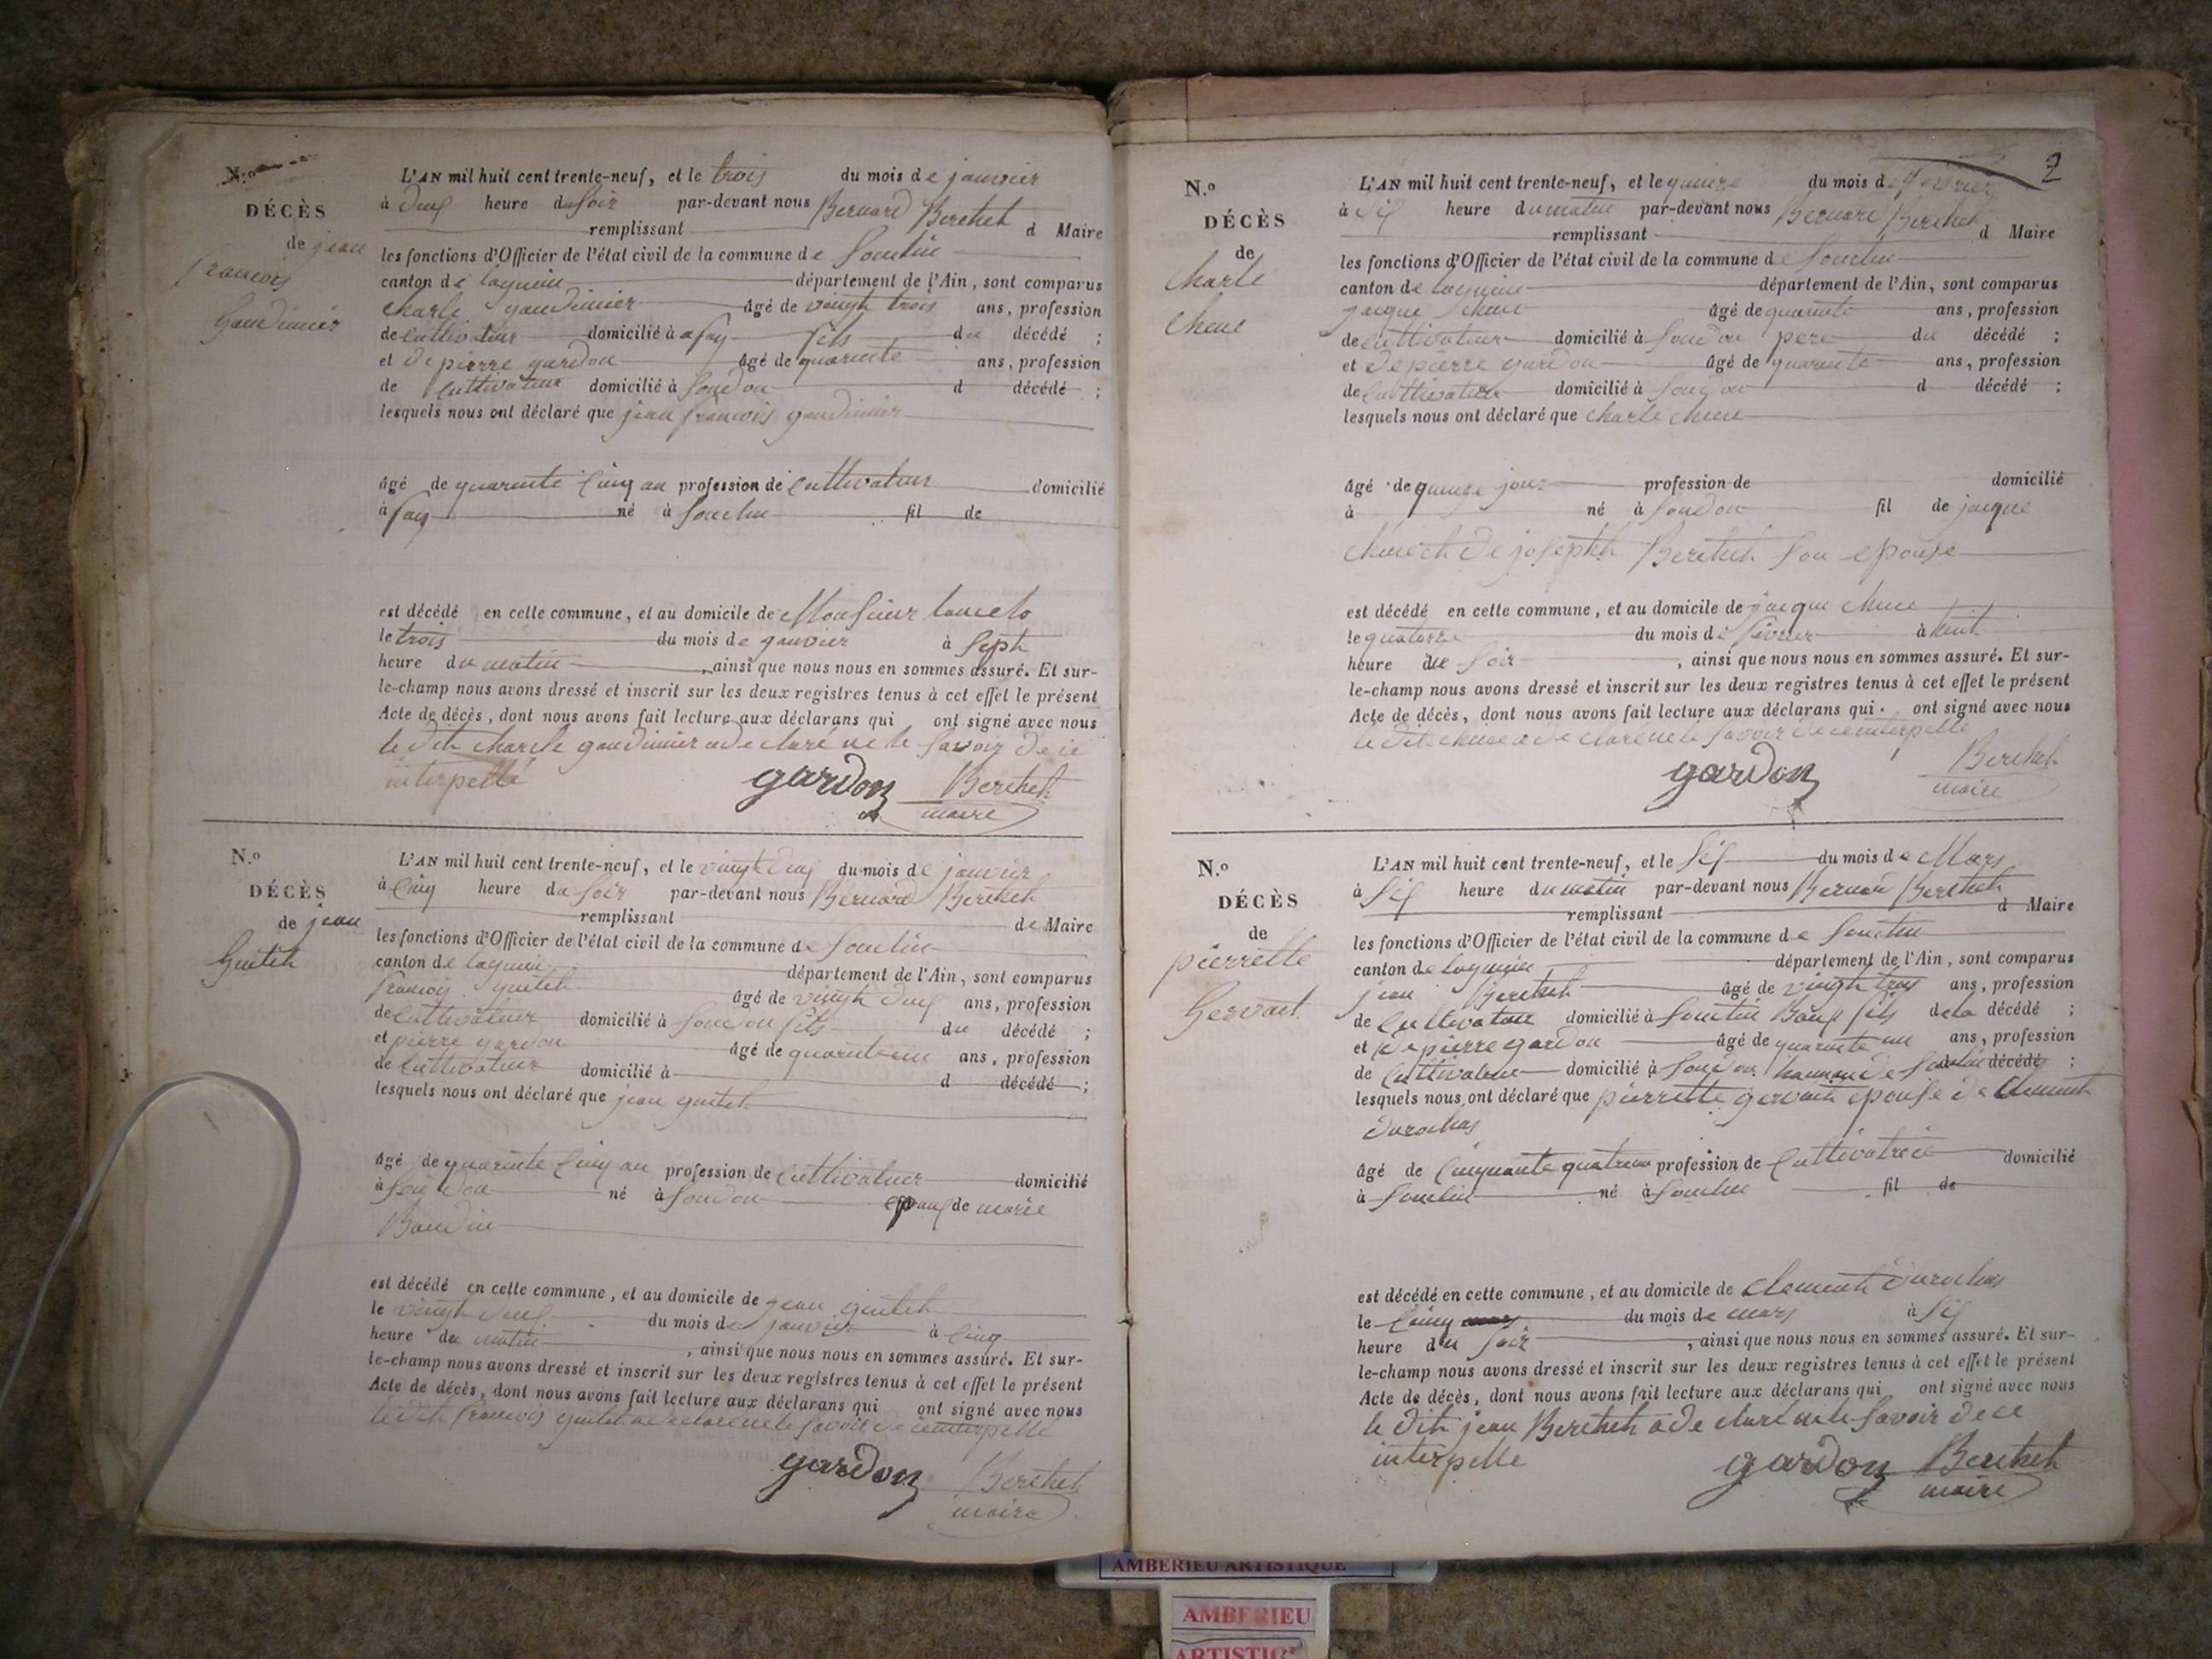 N.º
DÉCÈS
de jean
francois
Gaudinier
L'AN mil huit cent trente-neuf, et le trois du mois de janvier
à deux heure du Soir par-devant nous Bernard Berthet
remplissant d Maire
les fonctions d'Officier de l'état civil de la commune de Souclin
canton de lagnieu département de l'Ain, sont comparus
charle gaudinier âgé de vingt trois ans, profession
de cultivateur domicilié à fay fils du décédé ;
et de pierre gardon âgé de quarente ans, profession
de cultivateur domicilié à Soudon d décédé ;
lesquels nous ont déclaré que jean francois gaudinier
âgé de quarente cinq an profession de cultivateur domicilié
à fay né à Souclin fil de
est décédé en cette commune, et au domicile de Monsieur
le trois du mois de janvier à Seph
heure du matin, ainsi que nous nous en sommes assuré. Et sur-
le-champ nous avons dressé et inscrit sur les deux registres tenus à cet effet le présent
Acte de décès, dont nous avons fait lecture aux déclarans qui ont signé avec nous
le dit charle gaudinier a declaré ne le Savoir de ce
interpellé
gardon Berthet
maire
N.º
DÉCÈS
de jean
Guiteh
L'AN mil huit cent trente-neuf, et le vingt deux du mois de janvier
à cinq heure du Soir par-devant nous Bernard Berthet
remplissant de Maire
les fonctions d'Officier de l'état civil de la commune de Souclin
canton de lagnieu département de l'Ain, sont comparus
francois guiteh âgé de vingt deux ans, profession
de cultivateur domicilié à Soudon fils du décédé ;
et pierre gardon âgé de quarente un ans, profession
de cultivateur domicilié à d décédé ;
lesquels nous ont déclaré que jean guiteh
âgé de quarente cinq an profession de cultivateur domicilié
à Soudon né à Soudon epoux de marie
Baudin
est décédé en cette commune, et au domicile de jean guiteh
le vingt deux du mois de janvier à cinq
heure du matin, ainsi que nous nous en sommes assuré. Et sur-
le-champ nous avons dressé et inscrit sur les deux registres tenus à cet effet le présent
Acte de décès, dont nous avons fait lecture aux déclarans qui ont signé avec nous
le dit francois guiteh a declaré ne le Savoir de ce interpellé
gardon Berthet
maire
2
N.º
DÉCÈS
de
Charle
Chene
L'AN mil huit cent trente-neuf, et le quinze du mois de fevrier
à Six heure du matin par-devant nous Bernard Berthet
remplissant d Maire
les fonctions d'Officier de l'état civil de la commune de Souclin
canton de lagnieu département de l'Ain, sont comparus
jacque chene âgé de quarente ans, profession
de cultivateur domicilié à Soudon pere du décédé ;
et de pierre gardon âgé de quarente ans, profession
de cultivateur domicilié à Soudon d décédé ;
lesquels nous ont déclaré que charle chene
âgé de quinze jour profession de domicilié
à né à Soudon fil de jacque
chene et de josephth Berthet Son epouse
est décédé en cette commune, et au domicile de jacque chene
le quatorze du mois de février à huit
heure du Soir, ainsi que nous nous en sommes assuré. Et sur-
le-champ nous avons dressé et inscrit sur les deux registres tenus à cet effet le présent
Acte de décès, dont nous avons fait lecture aux déclarans qui ont signé avec nous
le dit chene a declaré ne le Savoir de ce interpellé
gardon Berthet
maire
N.º
DÉCÈS
de
pierrette
Gervait
L'AN mil huit cent trente-neuf, et le Six du mois de Mars
à Six heure du matin par-devant nous Bernard Berthet
remplissant d Maire
les fonctions d'Officier de l'état civil de la commune de Souclin
canton de lagnieu département de l'Ain, sont comparus
jean Berthet âgé de vingt trois ans, profession
de cultivateur domicilié à Souclin Baux fils de la décédé ;
et de pierre gardon âgé de quarente un ans, profession
de cultivateur domicilié à Soudon hameau de Souclin décédé ;
lesquels nous ont déclaré que pierrette gervait epouse de Clement
durochas
âgé de cinquante quatre an profession de cultivatrice domicilié
à Souclin né à Souclin fil de
est décédé en cette commune, et au domicile de clement durochas
le cinq du mois de mars à Six
heure du Soir, ainsi que nous nous en sommes assuré. Et sur-
le-champ nous avons dressé et inscrit sur les deux registres tenus à cet effet le présent
Acte de décès, dont nous avons fait lecture aux déclarans qui ont signé avec nous
le dit jean Berthet a declaré ne le Savoir de ce
interpelle
gardon Berthet
maire
AMBERIEU ARTISTIQUE
AMBERIEU
ARTISTIQ